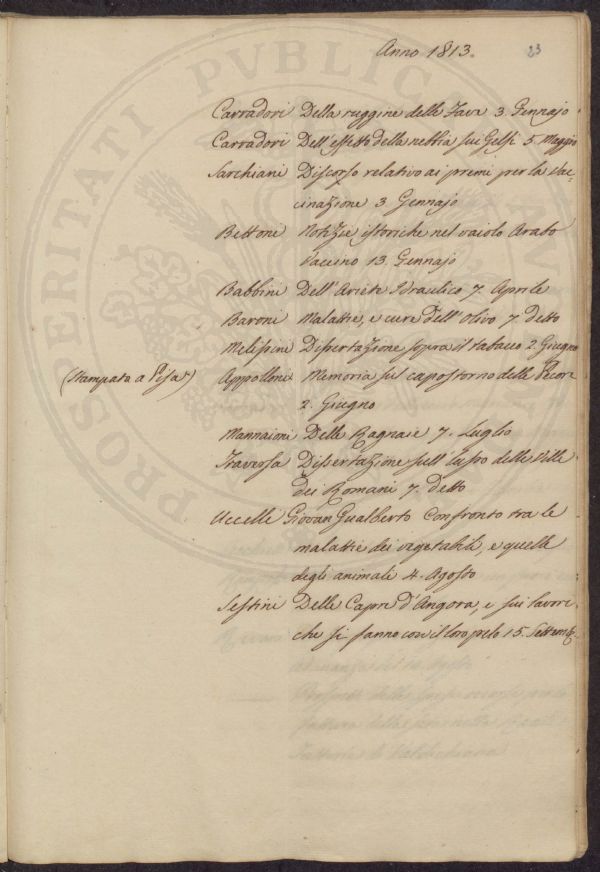 Anno 1813. 23
Carradori Della ruggine delle Fave 3. Gennajo
Carradori Dell'effetto della nebbia sui Gelsi 5. Maggio
Sarchiani Discorso relativo ai premi per la Vac=
cinazione 3 Gennajo
Bettoni Notizie istoriche nel vaiolo Arabo
Vaccino 13. Gennajo
Babbini Dell'Ariete Idraulico 7. Aprile
Baroni Malattie, e cure dell'Olivo 7. detto
Dissertazione sopra il tabacco 2. Giugno
(Stampata a Pisa) Appolloni Memoria sul capostorno delle Pecore
2. Giugno
Mannaioni Delle Ragnaie 7. Luglio
Traversa Dissertazione sull'lusso delle Ville
dei Romani 7. detto
Uccelli Giovan Gualberto Confronto tra le
malattie dei vegetabili, e quelle
degli animali 4. Agosto
Sestini Delle Capre d'Angora, e sui lavori
che si fanno con il loro pelo 15. Settemb.
PROSPERITATI PUBLICAE AUGENDAE